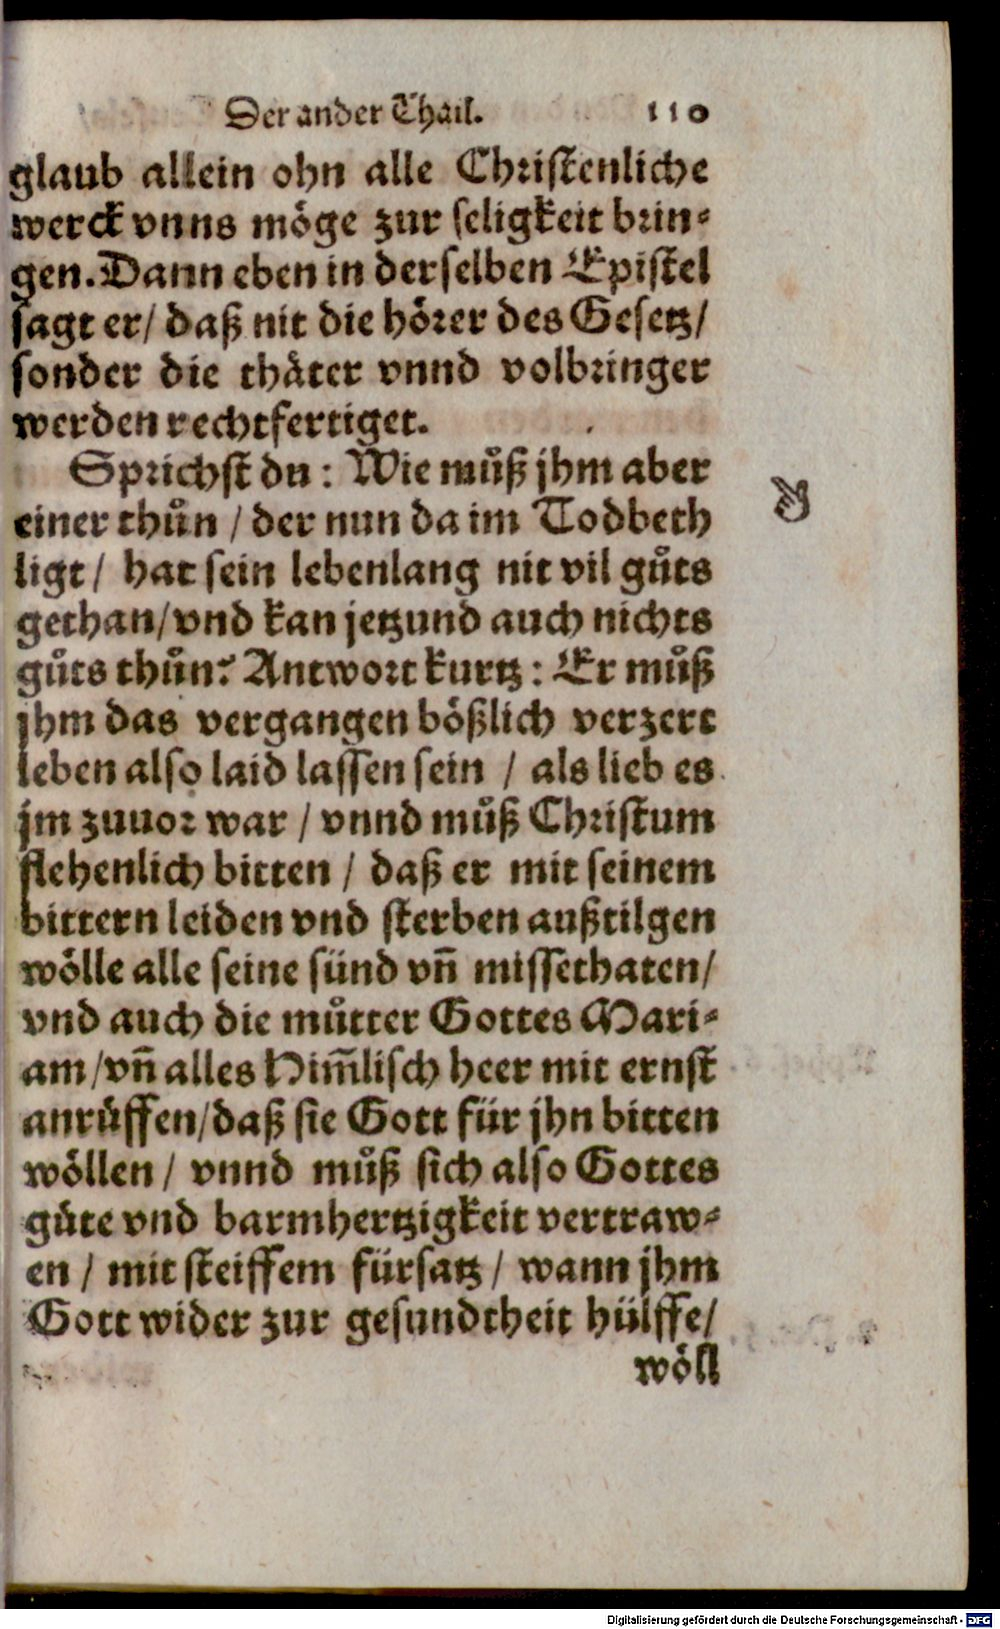 Der ander Thail. 110
glaub allein ohn alle Christenliche
werck vnns möge zur seligkeit brin⸗
gen. Dann eben in derselben Epistel
sagt er/ daß nit die hörer des Gesetz/
sonder die thäter vnnd volbringer
werden rechtfertiget.
Sprichst du: Wie můß jhm aber
einer thůn / der nun da im Todbeth
ligt / hat sein lebenlang nit vil gůts
gethan/ vnd kan jetzund auch nichts
gůts thůn? Antwort kurtz: Er můß
jhm das vergangen bößlich verzert
leben also laid lassen sein / als lieb es
jm zuuor war / vnnd můß Christum
flehenlich bitten / daß er mit seinem
bittern leiden vnd sterben außtilgen
wölle alle seine sünd vñ missethaten/
vnd auch die můtter Gottes Mari⸗
am/ vñ alles Him̃lisch heer mit ernst
anrůffen/ daß sie Gott für jhn bitten
wöllen / vnnd můß sich also Gottes
güte vnd barmhertzigkeit vertraw⸗
en / mit steiffem fürsatz / wann jhm
Gott wider zur gesundtheit hülffe/
wöll
Digitalisierung gefördert durch die Deutsche Forschungsgemeinschaft - DFG